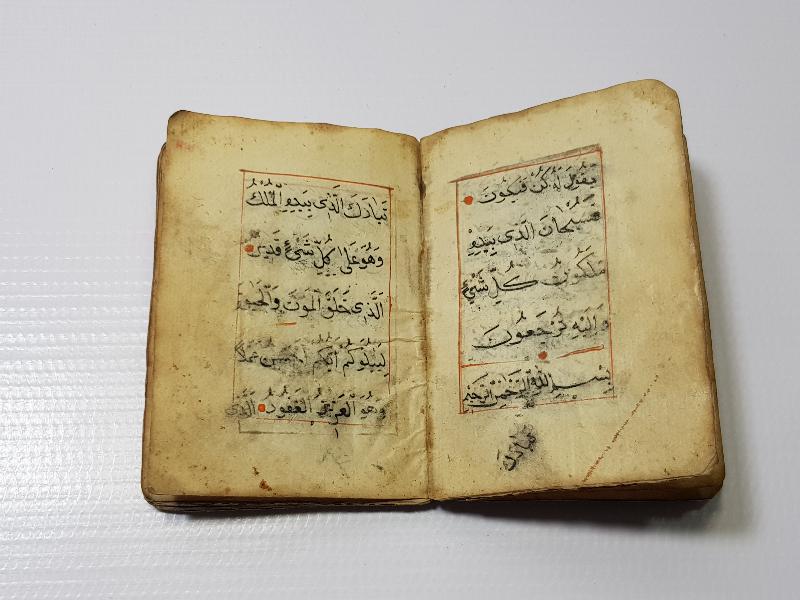 يَقُولَ لَهُ كُنْ فَيَكُونَ
فَسُبْحَانَ الَّذِى بِيَدِهِ
مَلَكُوتُ كُلِّ شَىْءٍ
وَاِلَيْهِ تُرْجَعُونَ
بِسْمِ اللّٰهِ الرَّحْمٰنِ الرَّحِيْمِ
تبارك
تَبَارَكَ الَّذِى بِيَدِهِ الْمُلْكُ
وَهُوَ عَلَى كُلِّ شَىْءٍ قَدِيرٌ
الَّذِى خَلَقَ الْمَوْتَ وَالْحَيٰوةَ
لِيَبْلُوَكُمْ اَيُّكُمْ اَحْسَنُ عَمَلًا
وَهُوَ الْعَزِيْزُ الْغَفُوْرُ الَّذِى